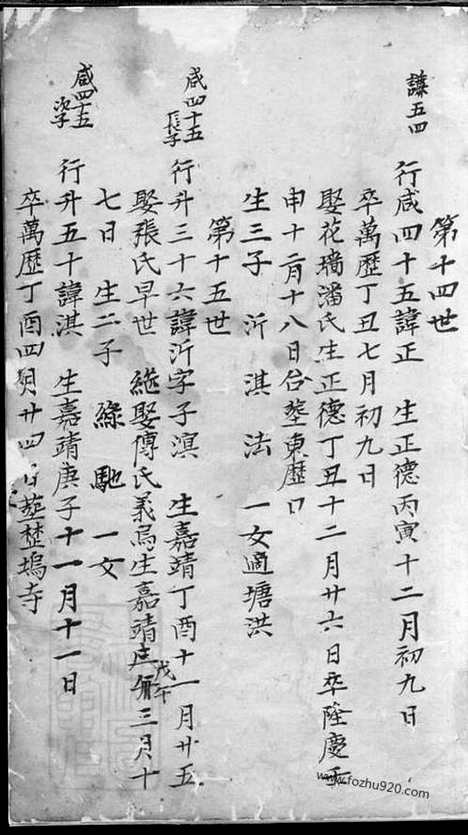 第十四世
謙五四
行咸四十五諱正 生正德丙寅十二月初九日
卒萬歷丁丑七月初九日
娶花墻潘氏生正德丁丑十二月廿六日卒隆慶壬
申十二月十八日合塟東歷口
生三子 沂 淇 法 一女適塘洪
第十五世
咸四十五
長子
行升三十六諱沂字子溟 生嘉靖丁酉十一月廿五
娶張氏早世 繼娶傅氏義烏生嘉靖戊午三月十
七日 生二子 綠 馳 一女
咸四十五
次子
行升五十諱淇 生嘉靖庚子十一月十一日
卒萬歷丁酉四月廿四日葬埜塢寺
www.fozhu920.com